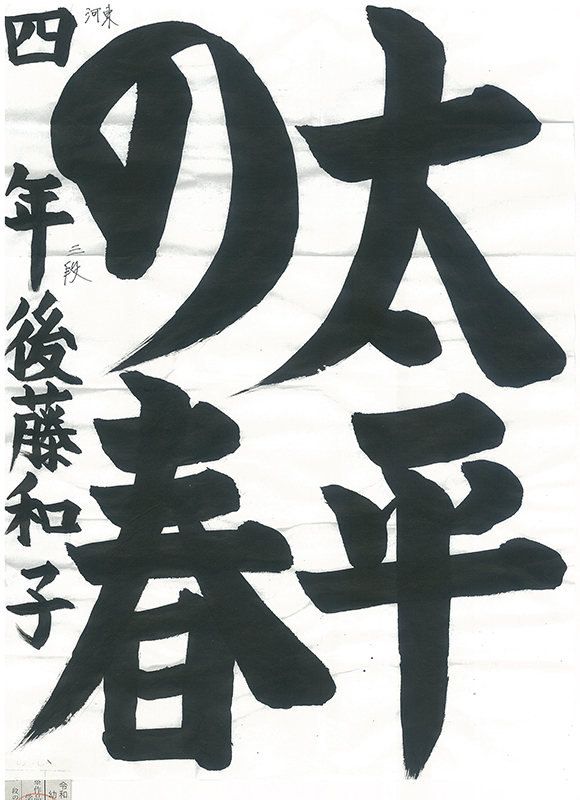 太平
の春
四年 後藤和子
河東
三段
令和